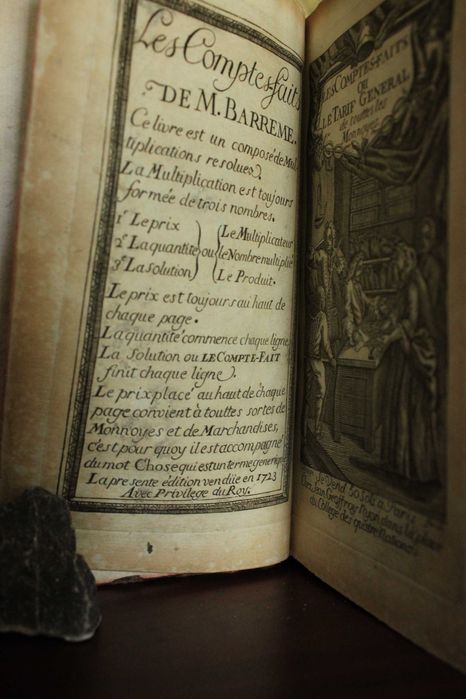 Les Comptes-faits
DE M. BARREME.
Ce livre est un composé de Mul
tiplications resolues.
La Multiplication est toujours
formée de trois nombres.
1.e Le prix
2.e La quantité
3.e La solution
ou
Le Multiplicateur
le Nombre multiplié
Le Produit.
Le prix est toujours au haut de
chaque page.
La quantité commence chaque ligne
La solution ou LE COMPTE-FAIT
finit chaque ligne.
Le prix placé au haut de chaque
page convient à touttes sortes de
Monnoyes et de Marchandises,
c'est pour quoy il est accompagné
du mot Chose qui est un terme generique
La presente édition vendüe en 1723
Avec Privilege du Roy.
LES COMPTES-FAITS
OU
LE TARIF GENERAL
de touttes les
Monnoyes
Se Vend 50 Sols a Paris
Chez Jean Geoffroy Nyon dans la place
du College des quatre Nations